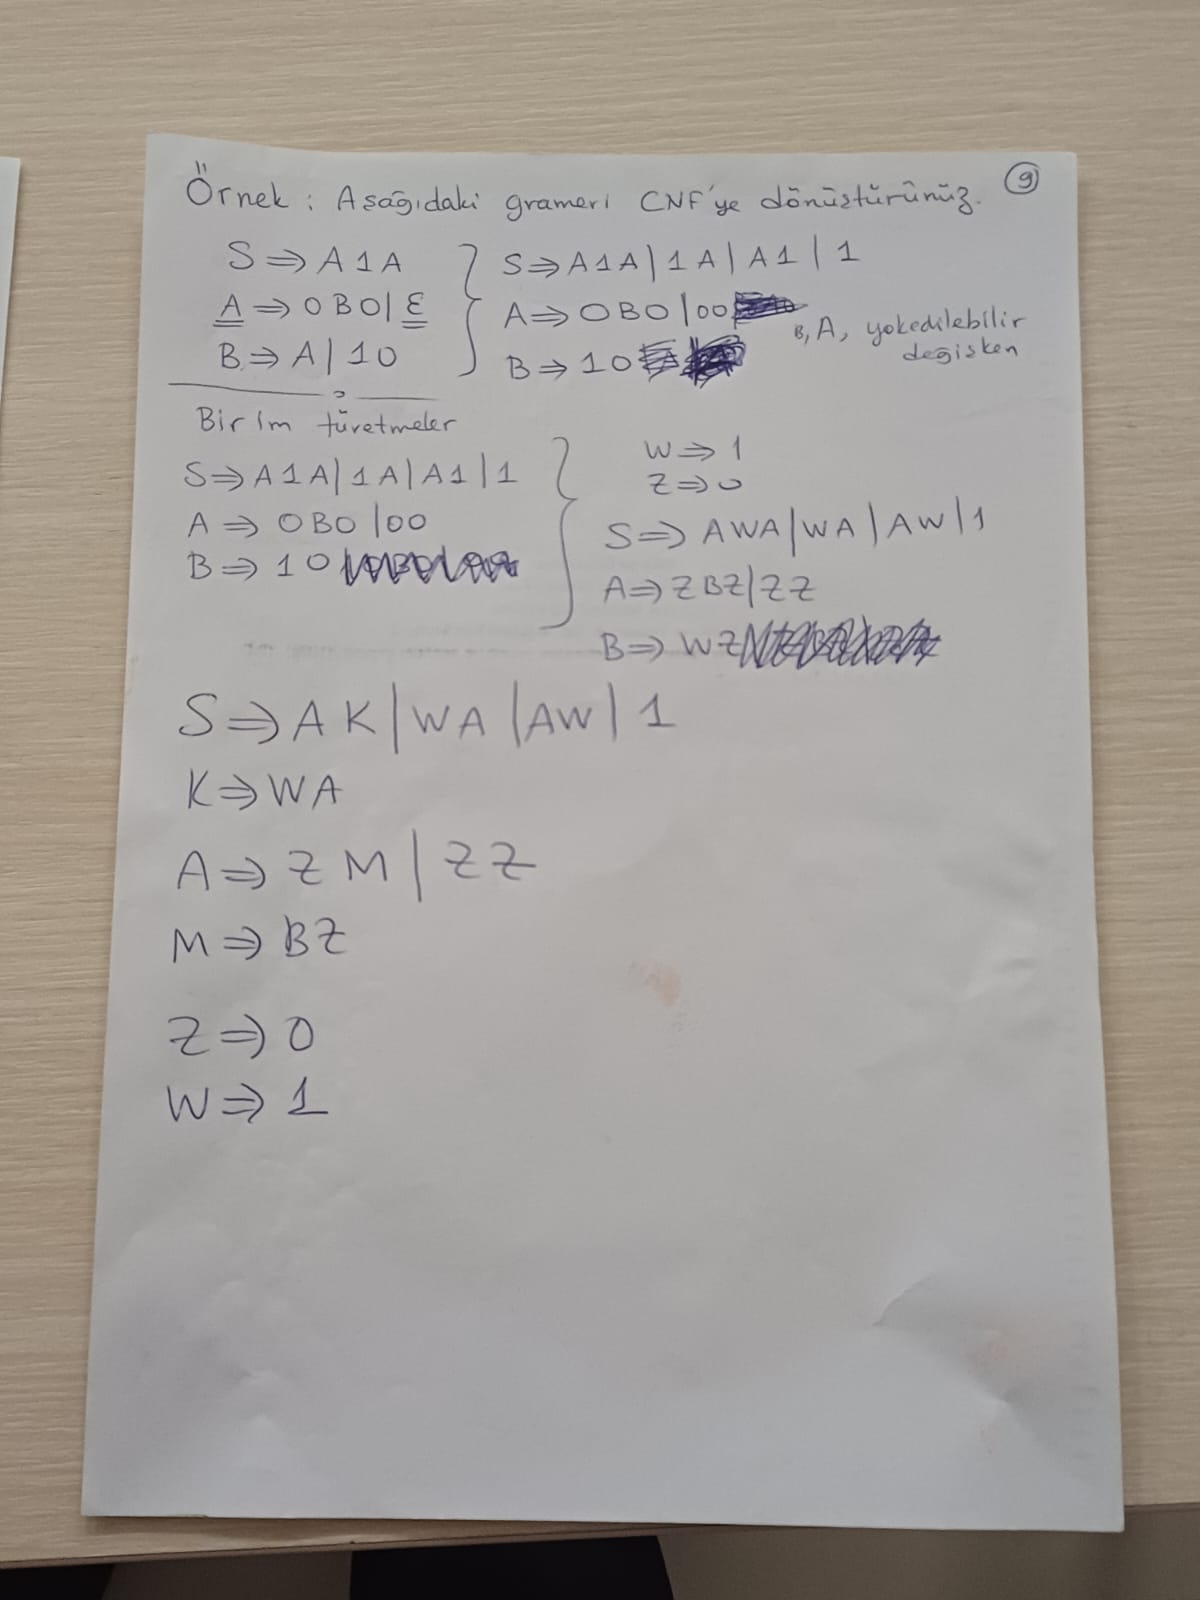 Örnek : Aşağıdaki grameri CNF'ye dönüştürünüz. 9
S ⇒ A1A
A ⇒ 0B0 | ε
B ⇒ A | 10
S ⇒ A1A | 1A | A1 | 1
A ⇒ 0B0 | 00
B ⇒ 10
B, A, yokedilebilir
değişken
Birim türetmeler
S ⇒ A1A | 1A | A1 | 1
A ⇒ 0B0 | 00
B ⇒ 10
W ⇒ 1
Z ⇒ 0
S ⇒ AWA | WA | AW | 1
A ⇒ ZBZ | ZZ
B ⇒ WZ
S ⇒ AK | WA | AW | 1
K ⇒ WA
A ⇒ ZM | ZZ
M ⇒ BZ
Z ⇒ 0
W ⇒ 1